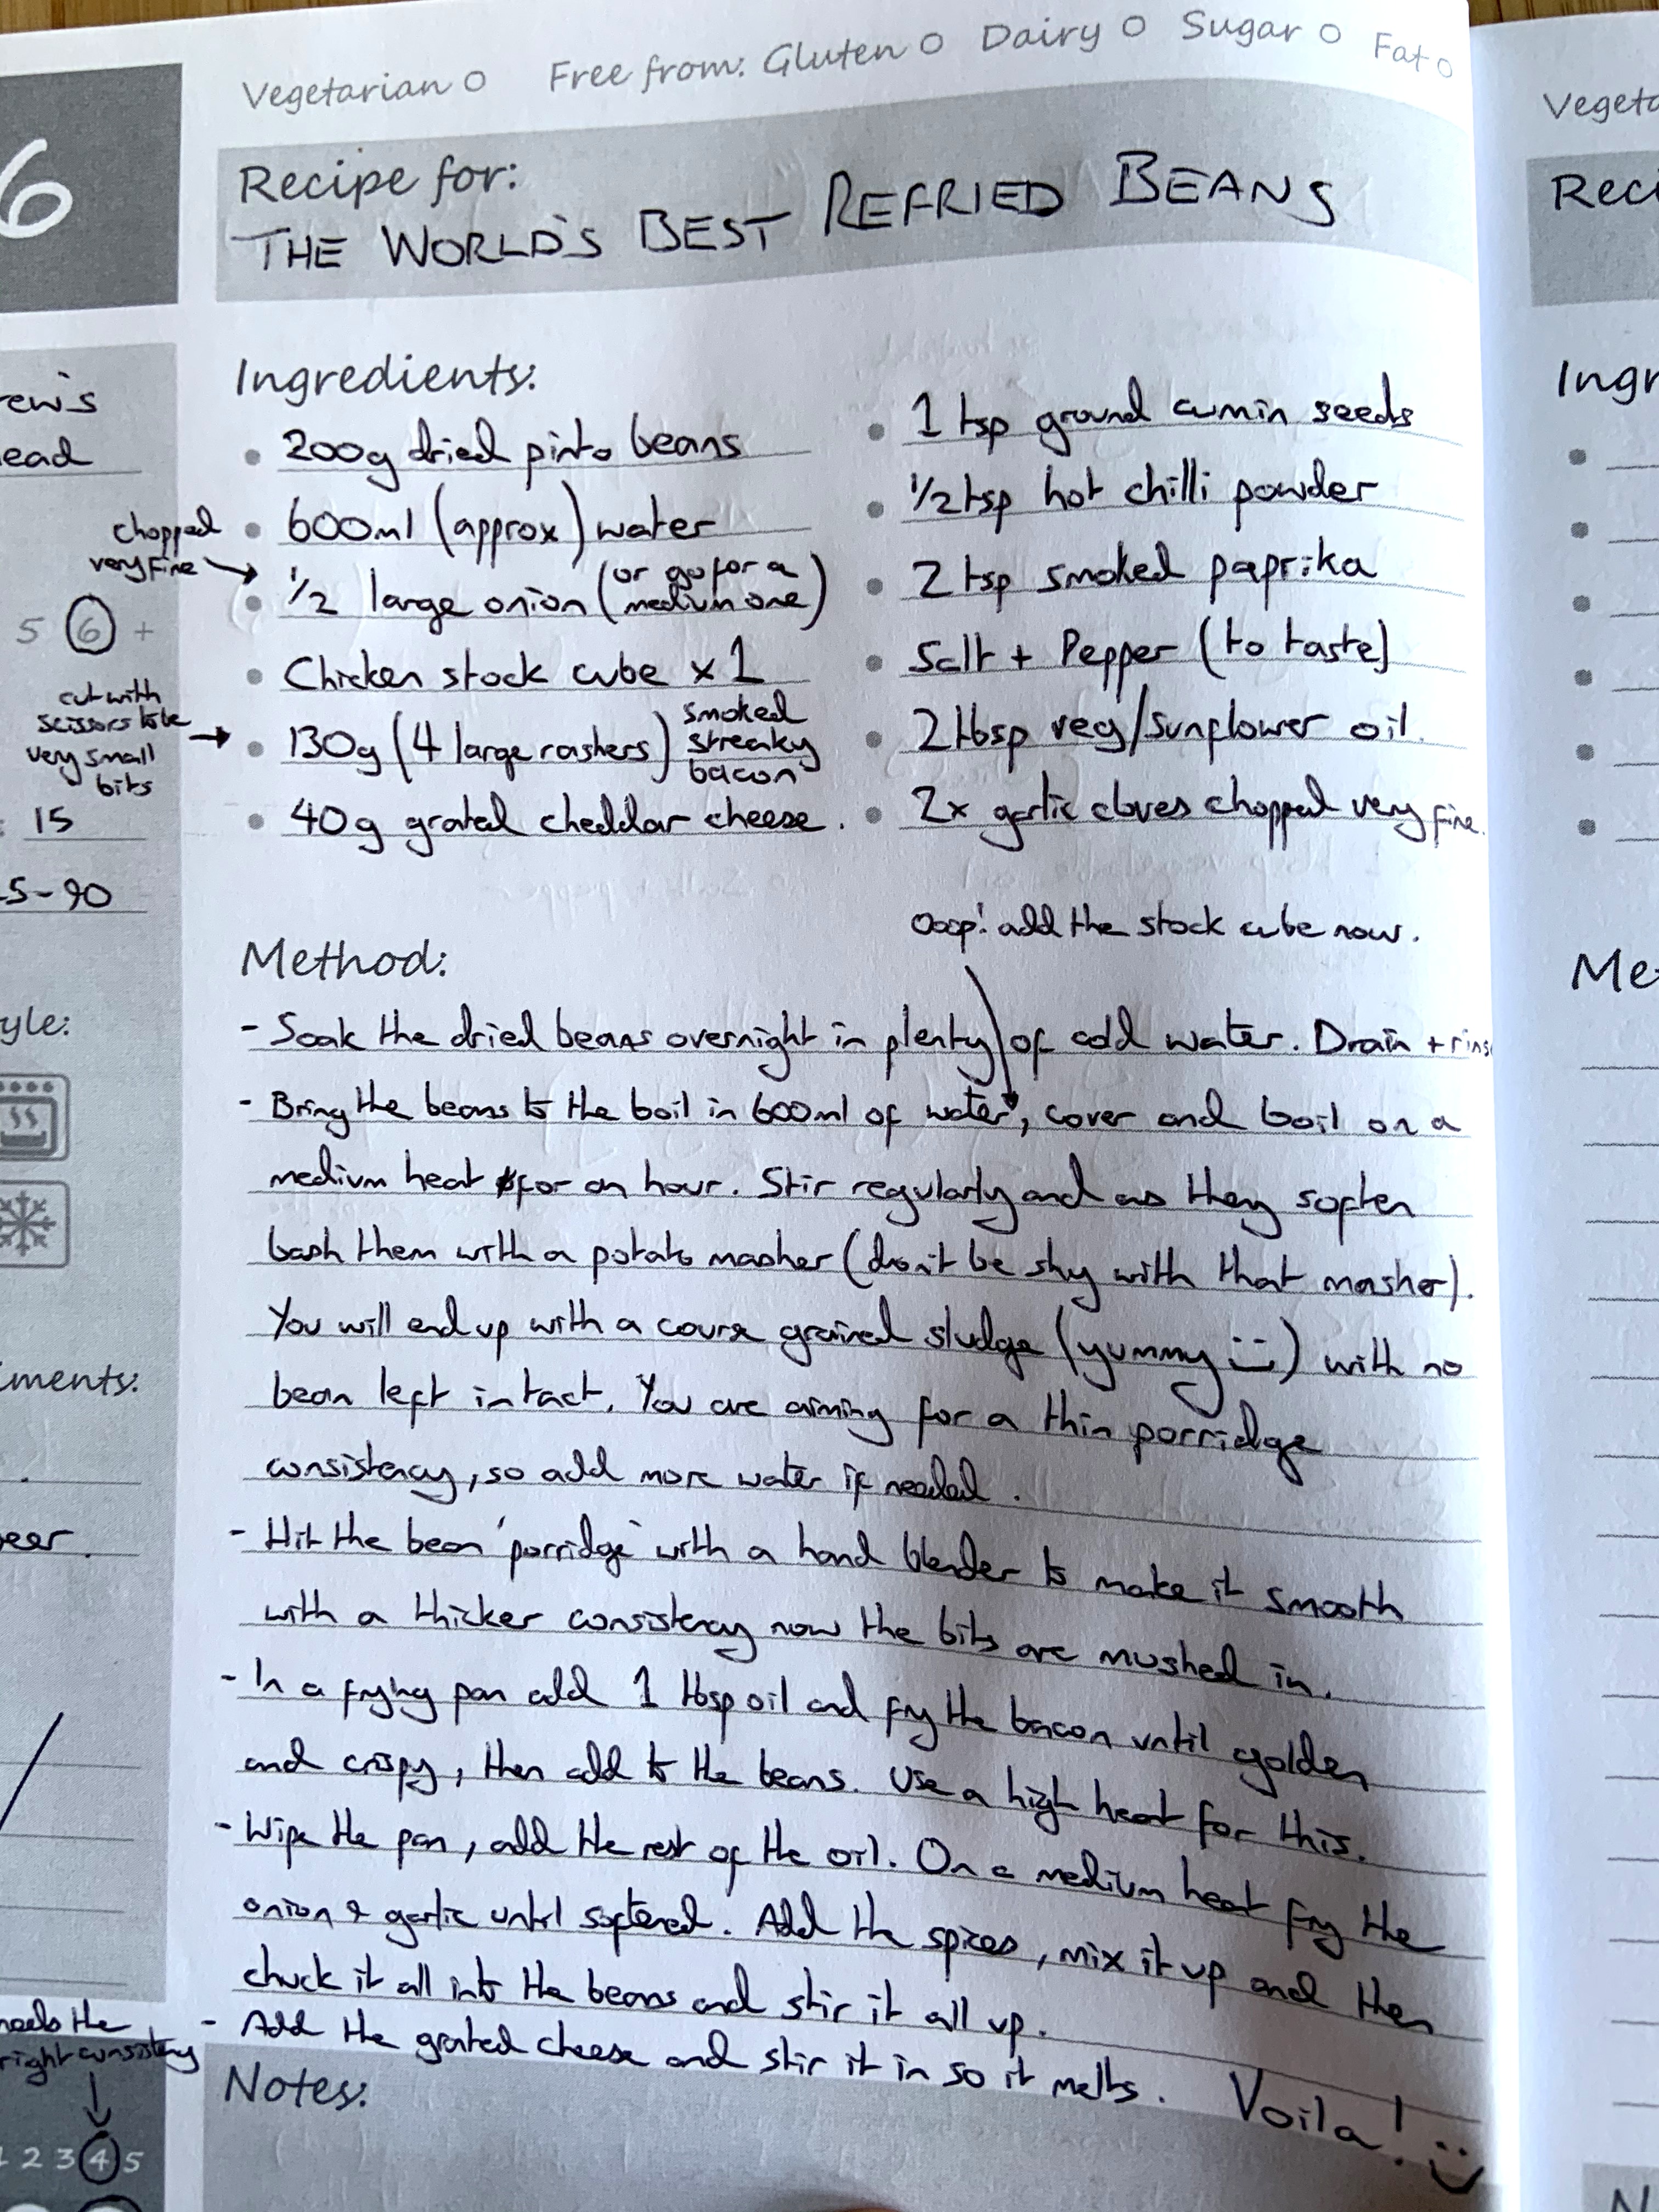 Vegetarian O Free from: Gluten O Dairy O Sugar O Fat O
6
Recipe for:
THE WORLD'S BEST REFRIED BEANS
Ingredients:
• 200g dried pinto beans
• 600ml (approx) water
chopped
very fine
• 1/2 large onion (or go for a
medium one)
• Chicken stock cube x 1
cut with
scissors to be
very small
bits
• 130g (4 large rashers) smoked
streaky
bacon
• 40g grated cheddar cheese.
• 1 tsp ground cumin seeds
• 1/2 tsp hot chilli powder
• 2 tsp smoked paprika
• Salt + Pepper (to taste)
• 2 tbsp veg/sunflower oil.
• 2x garlic cloves chopped very fine.
Ooop! add the stock cube now.
Method:
- Soak the dried beans overnight in plenty of cold water. Drain + rins
- Bring the beans to the boil in 600ml of water, cover and boil on a
medium heat for an hour. Stir regularly and as they soften
bash them with a potato masher (don't be shy with that masher).
You will end up with a course grained sludge (yummy :-)) with no
bean left intact. You are aiming for a thin porridge
consistency, so add more water if needed.
- Hit the bean 'porridge' with a hand blender to make it smooth
with a thicker consistency now the bits are mushed in.
- In a frying pan add 1 tbsp oil and fry the bacon until golden
and crispy, then add to the beans. Use a high heat for this.
- Wipe the pan, add the rest of the oil. On a medium heat fry the
onion & garlic until softened. Add the spices, mix it up and then
chuck it all into the beans and stir it all up.
- Add the grated cheese and stir it in so it melts. Voila! :-)
Notes:
ew's
ead
5 6 +
15
5-90
yle:
iments:
eer.
needs the
right consistency
1 2 3 4 5
Vegeta
Reci
Ingr
Me
N